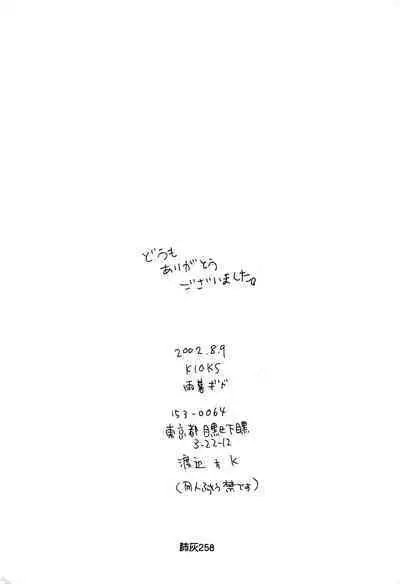 どうも
ありがとう
ございました。
2002.8.9
KIOKS
雨暮ギド
153-0064
東京都目黒区下目黒
3-22-12
渡辺方 K
禁です)
258